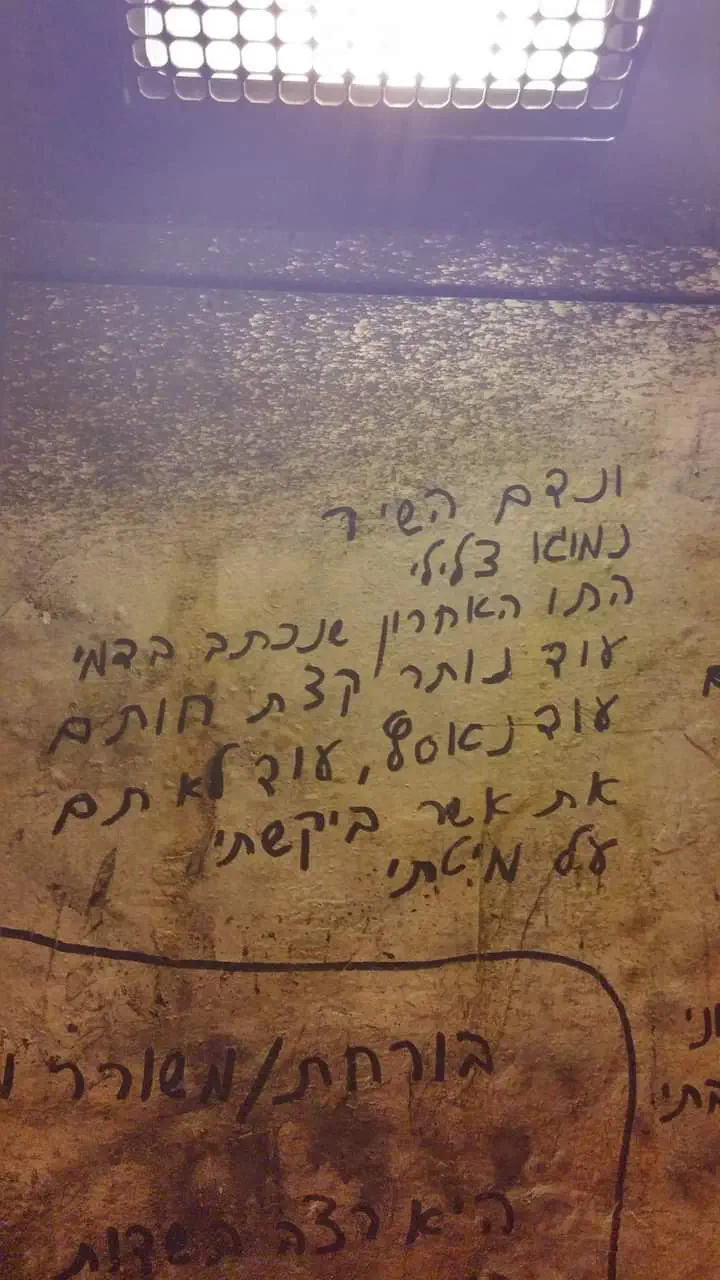 ונדם השיר
נמוגו צלילי
התו האחרון שנכתב בדמי
עוד נותר קצת חותם
עוד נאסף, עוד לא תם
את אשר ביקשתי
על מיטתי
בורחת/משורר
היא רצה השדות